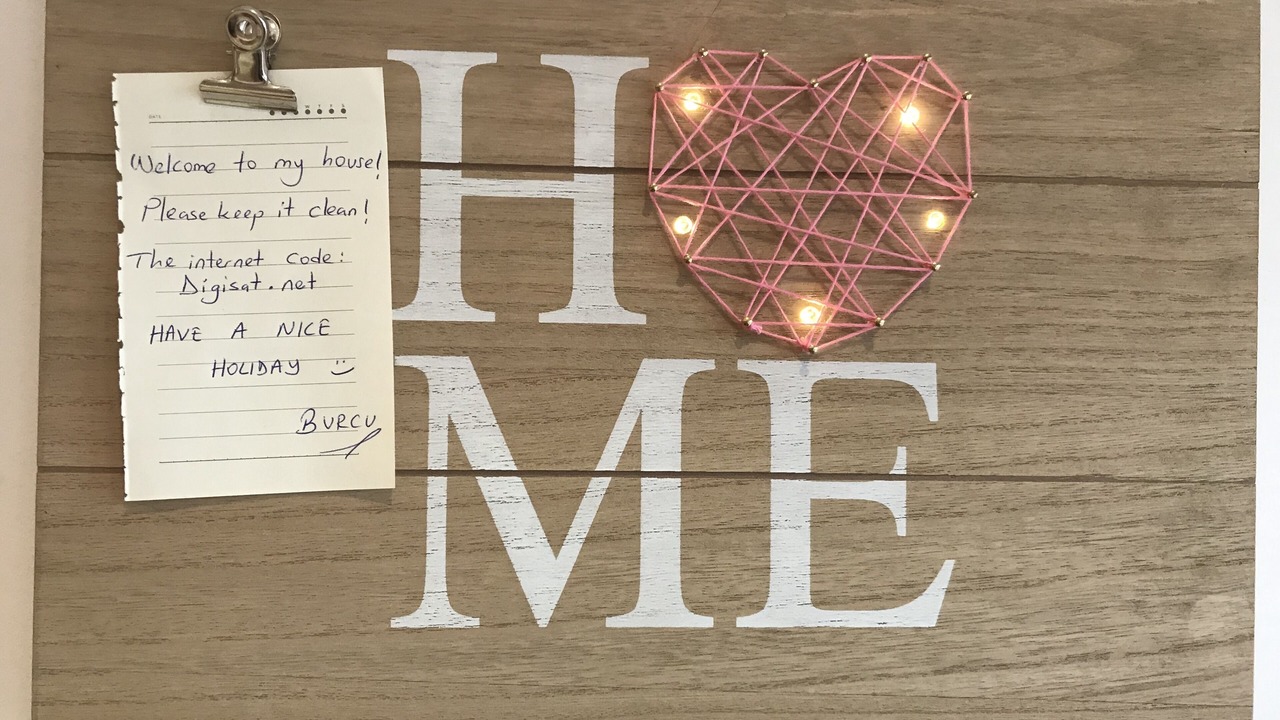 Welcome to my house!
Please keep it clean!
The internet code:
Digisat.net
HAVE A NICE
HOLIDAY :)
BURCU
H
ME